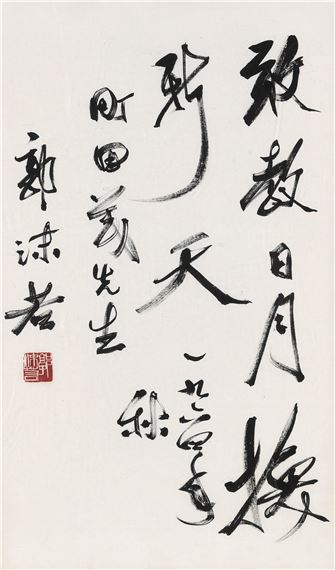 敢教日月換
新天
一九六四年
秋
町田茂先生
郭沫若